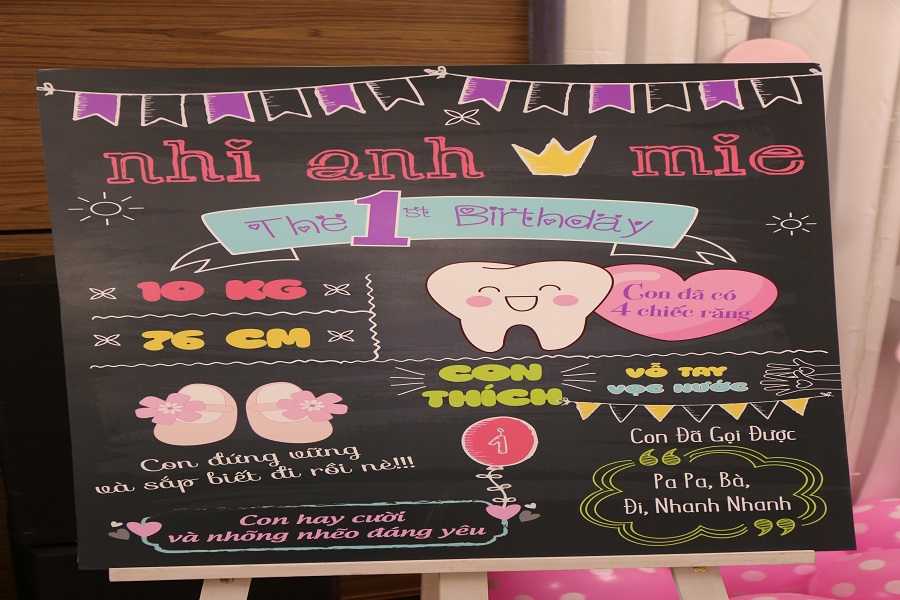 nhi anh mie
The 1st Birthday
10 KG
76 CM
Con đã có
4 chiếc răng
CON
THÍCH
VỖ TAY
VỌC NƯỚC
Con đứng vững
và sắp biết đi rồi nè!!!
1
Con Đã Gọi Được
“ Pa Pa, Bà,
Đi, Nhanh Nhanh ”
Con hay cười
và nhõng nhẽo đáng yêu